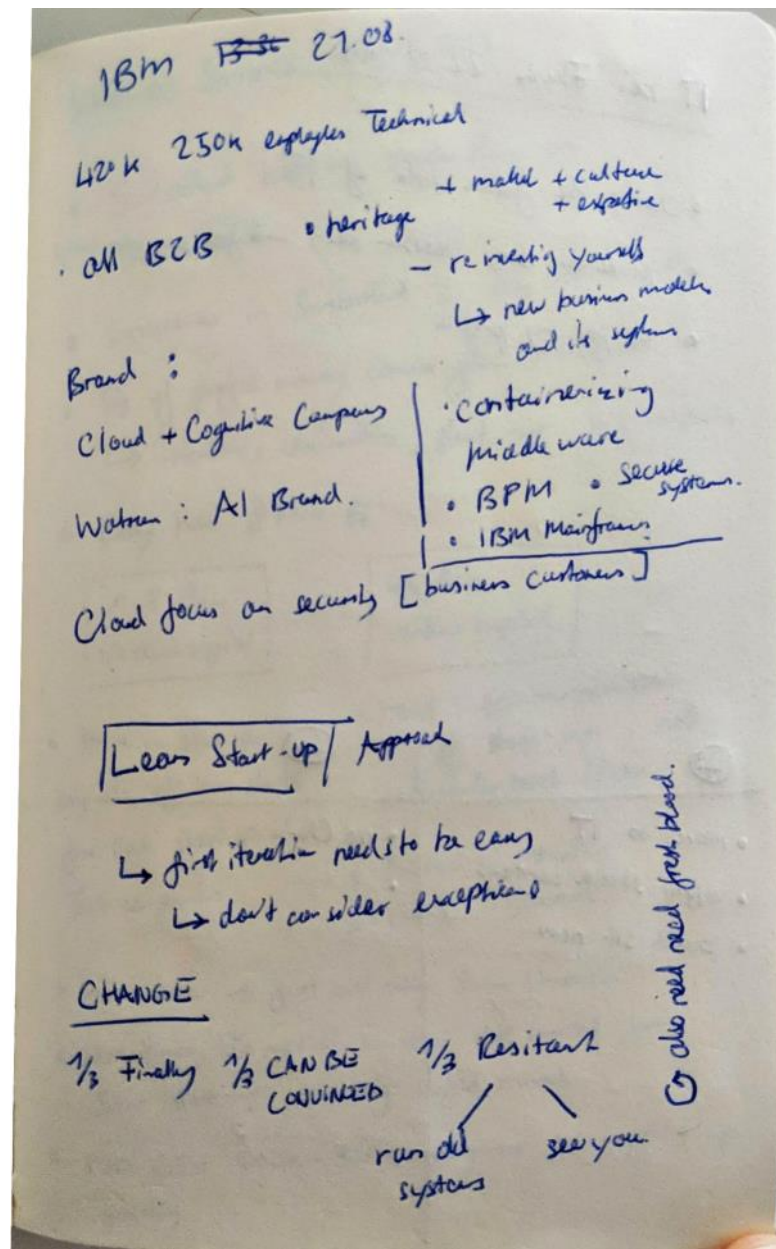 IBM 27.08.
420k 250k employees Technical
• all B2B
• heritage + market + culture
+ expertise
– reinventing yourself
↳ new business models
and its systems
Brand :
Cloud + Cognitive Company
Watson : AI Brand.
• containerizing
middleware
• BPM • secure
systems.
• IBM Mainframes
Cloud focus on security [business customers]
Lean Start-up Approach
↳ first iteration needs to be easy
↳ don't consider exceptions
CHANGE
1/3 Finally 1/3 CAN BE
CONVINCED
1/3 Resitant
run old
systems
see you.
also need need fresh blood.